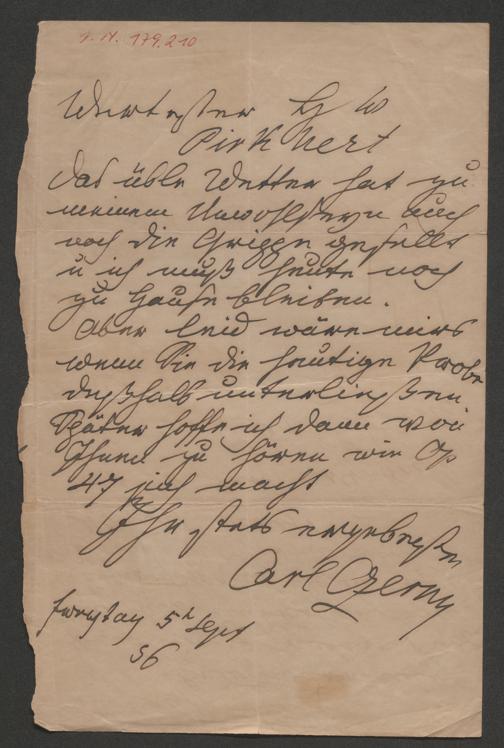 I. N. 179.210
Wertester H W
Pirkhert
Das üble Wetter hat zu
meinem Unwohlseyn auch
noch die Grippe gesellt
u ich muß heute noch
zu Hause bleiben.
Aber leid wäre mirs
wenn Sie die heutige Probe
deßhalb unterließen
Später hoffe ich dann von
Ihnen zu hören wie Op
47 sich macht
Ihr stets ergebenster
Carl Czerny
Freytag 5t Sept
56